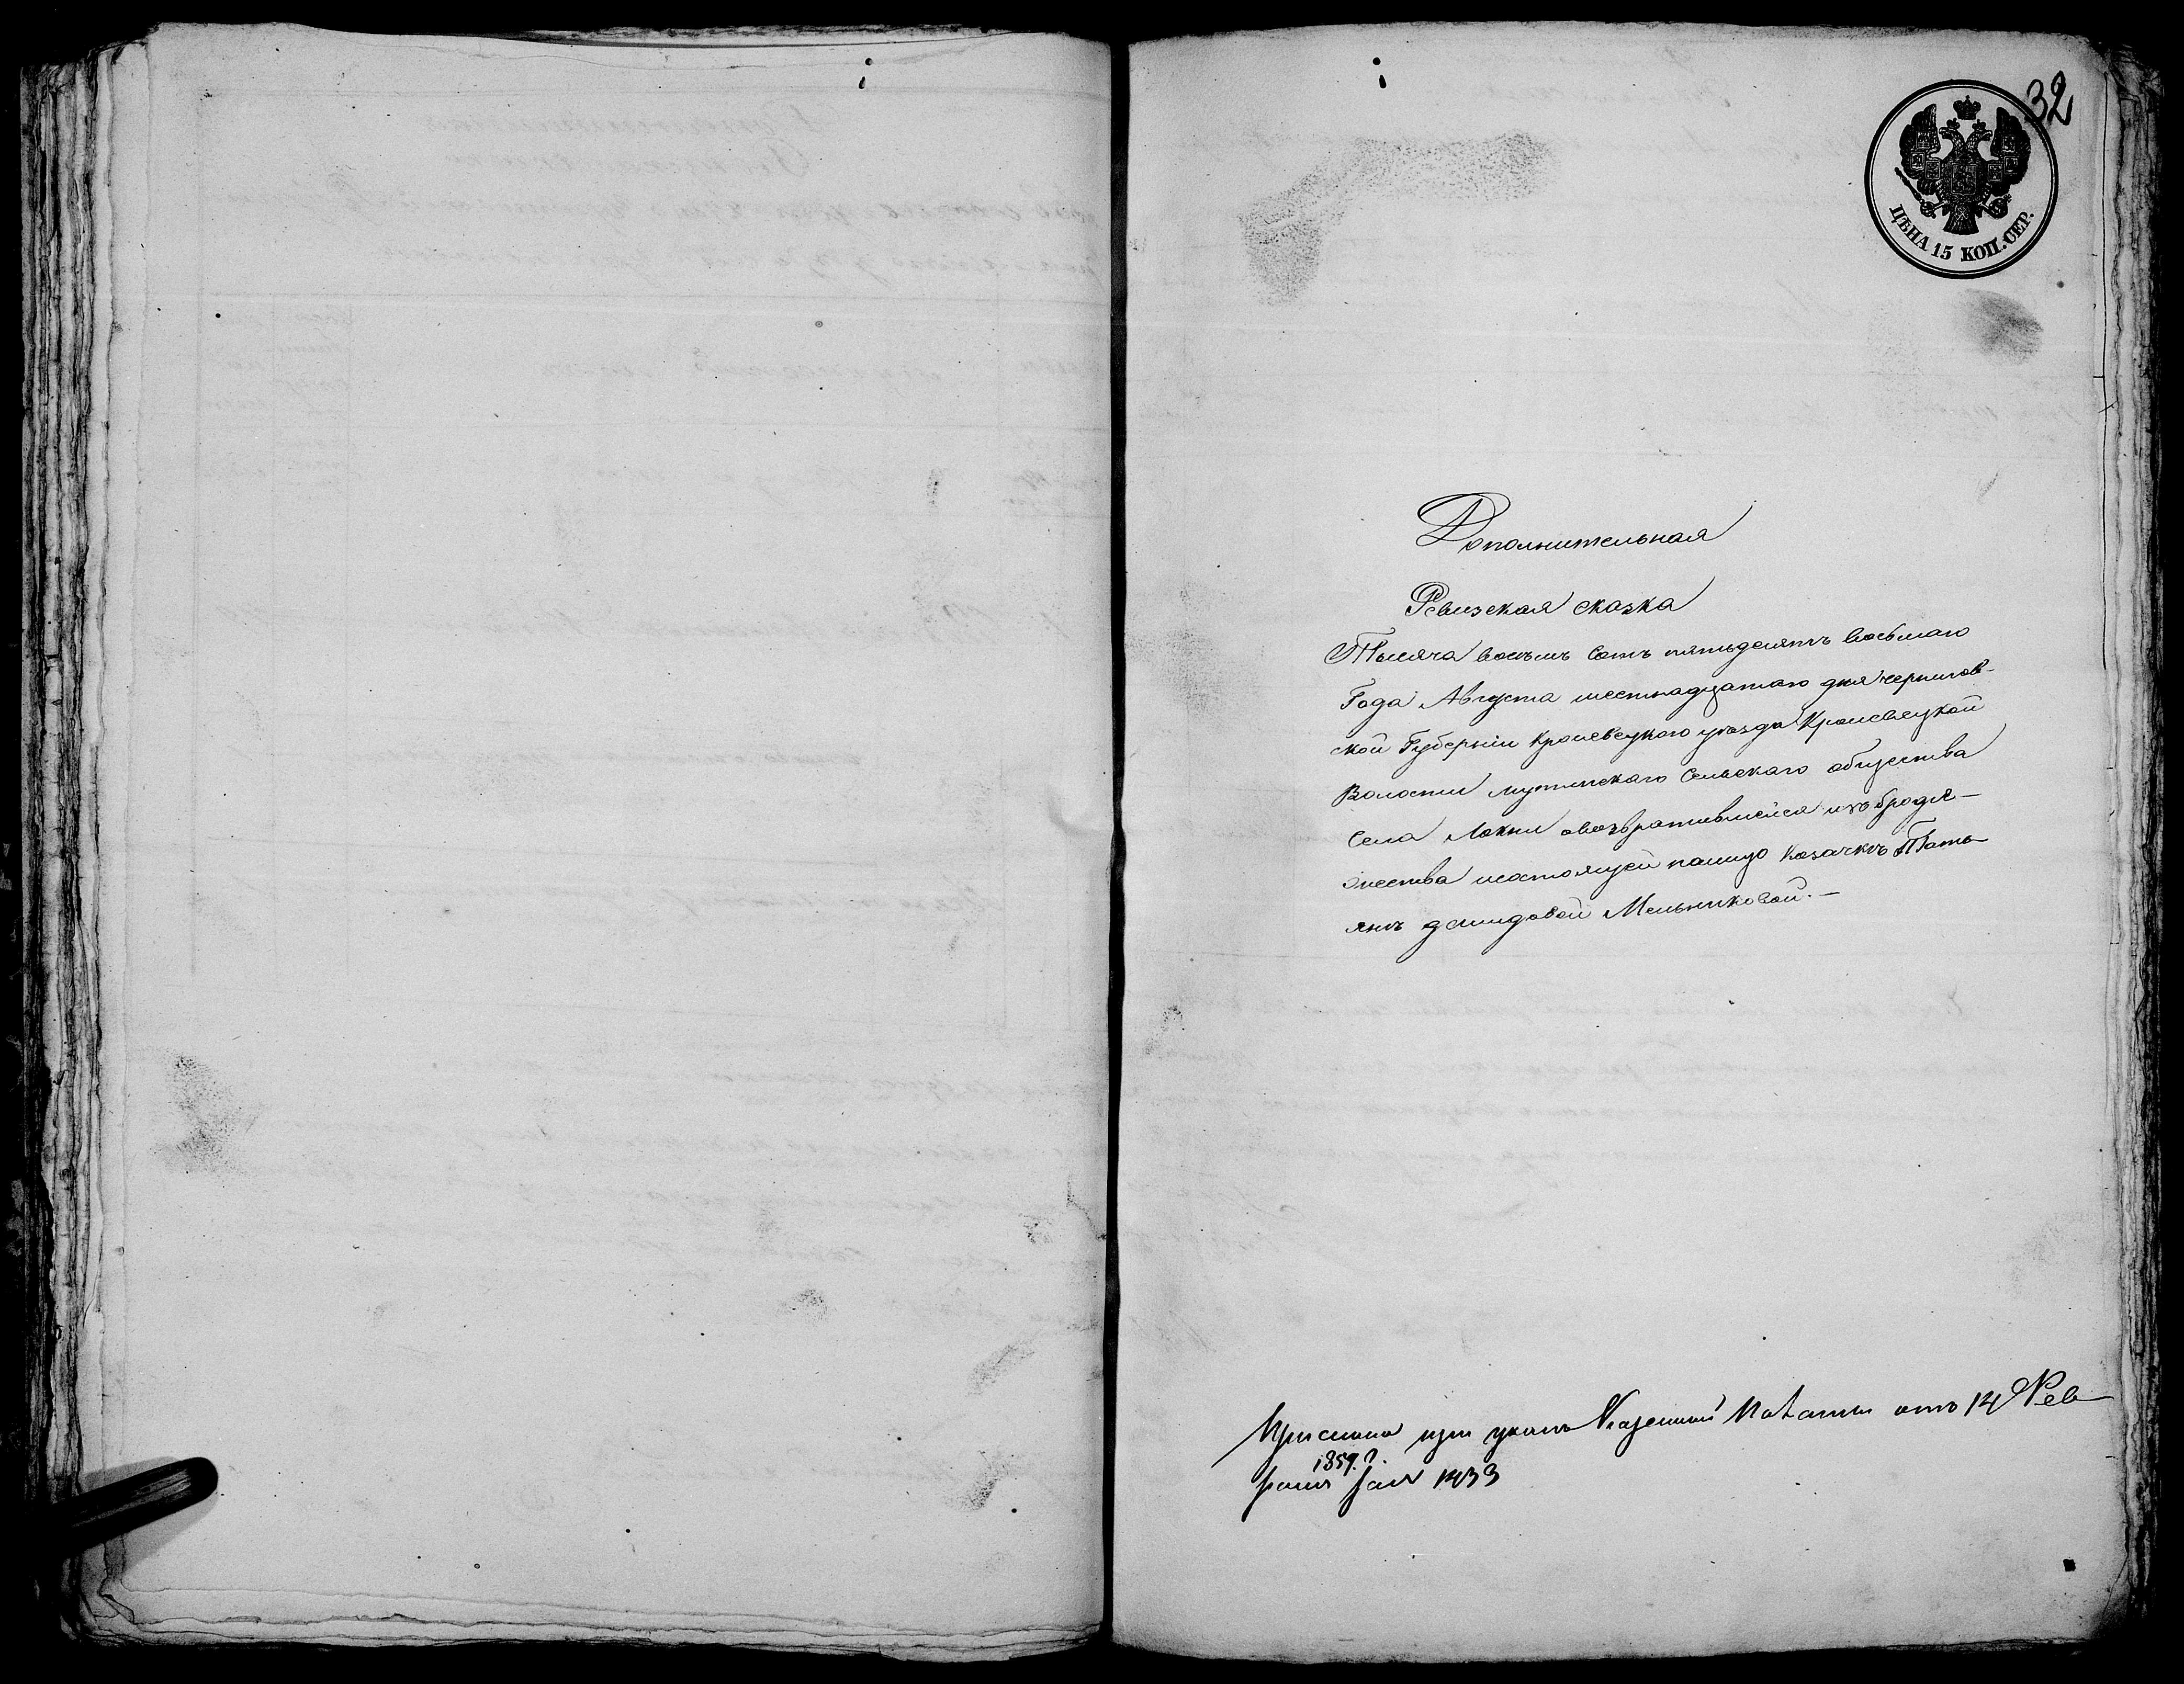 32
ЦѢНА 15 КОП. СЕР.
Дополнительная
Ревизская сказка
Тысяча восемь сотъ пятьдесятъ восьмаго
Года Августа шестнадцатаго дня чернигов-
ской Губерніи Кролевецкого уезда Кролевецкой
Волости мутинскаго Сельскаго общества
Села Локни овозвратившейся изъ бродя-
жества исостоящей налицо Козачкѣ Тать-
янѣ демидовой Мельниковой.-
При указѣ Казенной Палаты отъ 14 Фев-
1859 г.
раля за № 1433